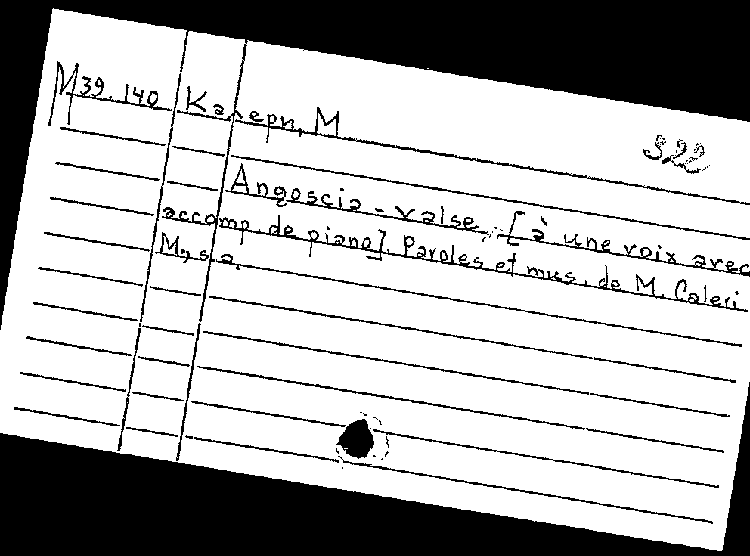 M39.140 Калери, М
322
Angoscia - valse, [à une voix avec
accomp. de piano]. Paroles et mus. de M. Caleri
М., s.a.